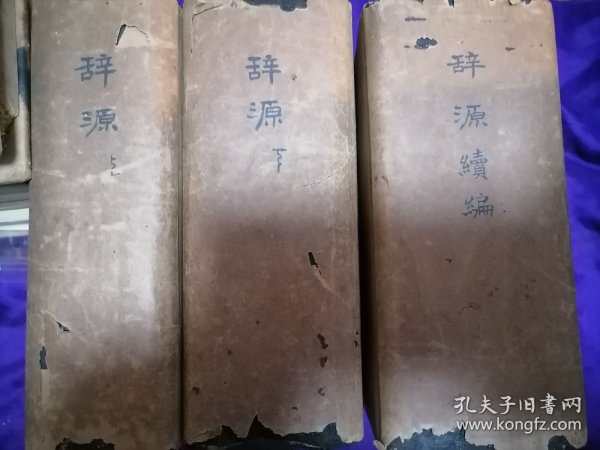 辞源 上
辞源 下
辞源續編
孔夫子旧書网
www.kongfz.com